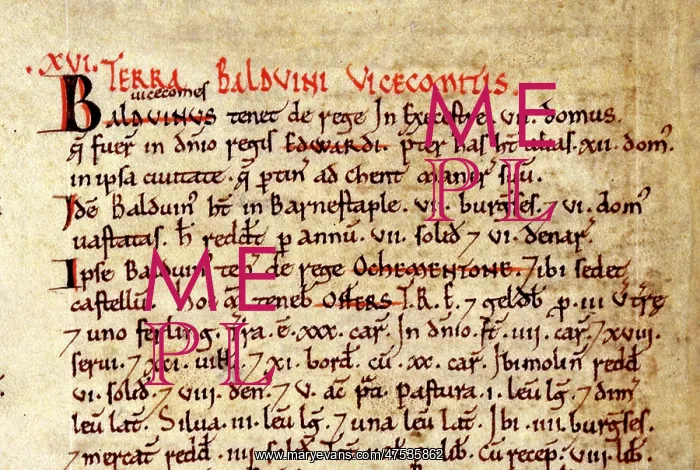 .XVI. TERRA BALDVINI VICECOMITIS.
vicecomes
BALDVINVS tenet de rege In Execestre. vii. domus.
q̃ fuer̃ in dñio regis EDWARDI. p̃ter has ht̃ alias. xii. dom̃.
in ipsa ciuitate. q̃ ptiñ ad Maner̃ suũ.
Idẽ Balduiñ ht̃ in Barnestaple. vii. burgses. 7 vi. dom̃
uastatas. h̃ reddt̃ p annũ. vii. solid̃ 7 vi. denar̃.
Ipse Balduiñ teñ de rege OCHEMENTONE. 7 ibi sedet
castellũ. teneb̃ OSFERS T.R.E. 7 geldb̃ p. iii
7 uno ferling. Tra. ẽ. xxx. car̃. In dñio. st̃. iiii. car̃. 7 xviii.
serui. 7 xxxi. uilli. 7 xi. bord̃. cũ. xx. car̃. Ibi moliñ redd̃
vi. solid̃. 7 viii. deñ. 7 v. ac̃ p̃ti. Pastura. i. leũ lg̃. 7 dim̃
leũ lat̃. Silua. iii. leũ lg̃. 7 una leũ lat̃. Ibi. iiii. burgses.
7 mercat̃ redd̃. iiii. solid̃. lib̃. Cũ recep̃. viii. lib̃.
ME
PL
ME
PL
www.maryevans.com/47535862